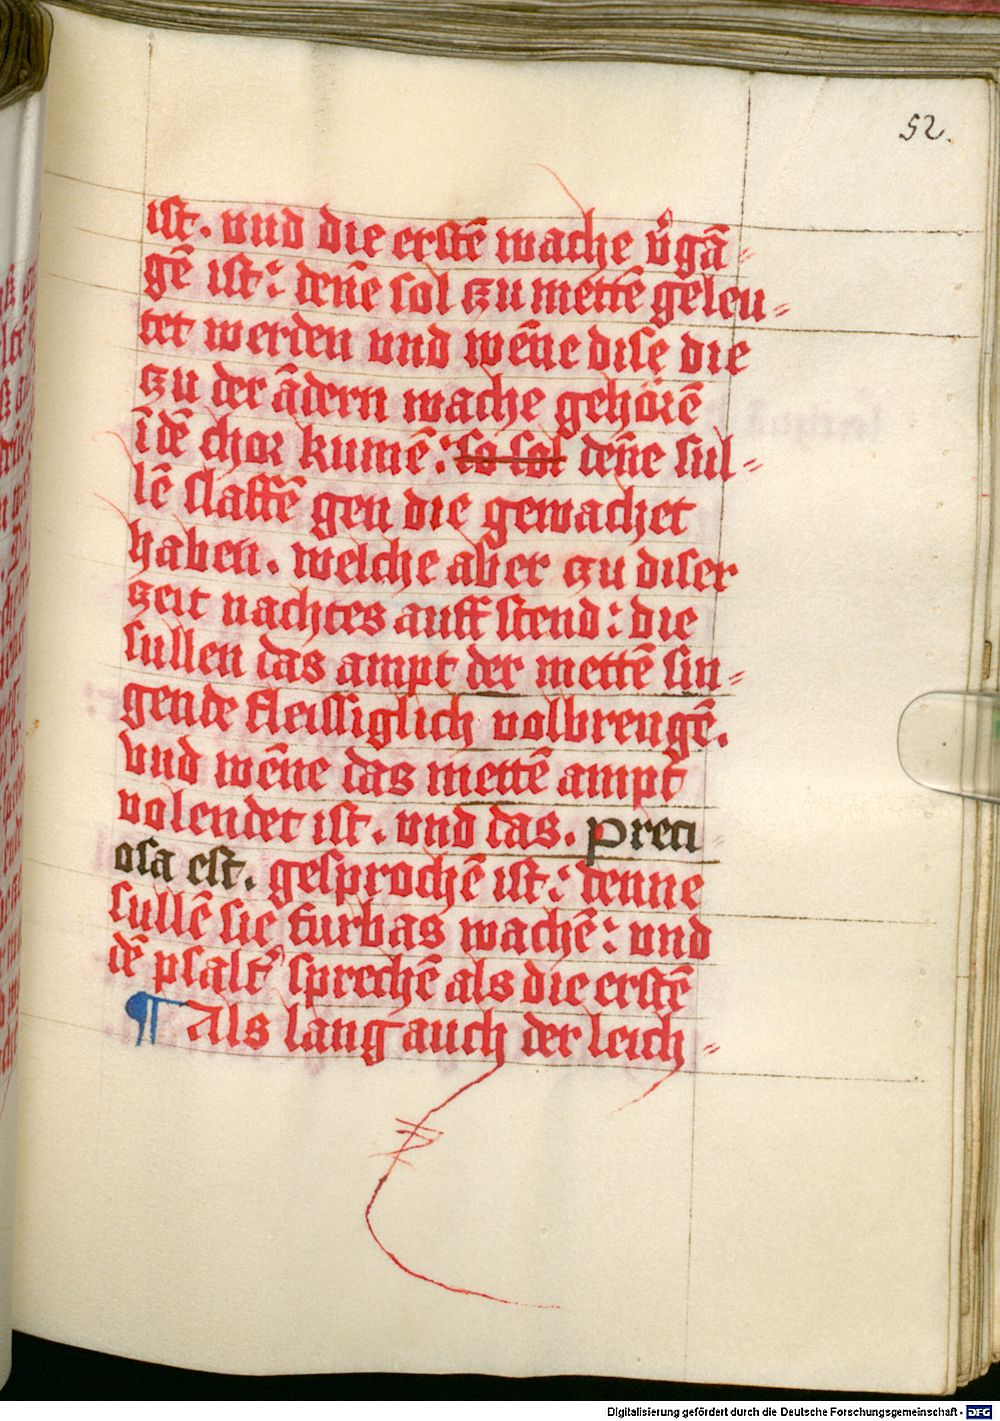 52.
ist. vnd die erstē wache v̓gā⸗
gē ist: den̄e sol zu mettē geleu⸗
tet werden vnd wēne dise die
zu der ādern wache gehörē
ī dē chor kumē: so sol den̄e sul⸗
lē slaffē gen die gewachet
haben. welche aber zu diser
zeit nachtes auff stend: die
sullen das ampt der mettē sin⸗
gende fleissiglich volbrengē.
vnd wēne das mettē ampt
volendet ist. vnd das. preci
osa est. gesprochē ist: denne
sullē sie furbas wachē: vnd
dē psalt̓ sprechē als die erstē
¶ Als lang auch der leich⸗
Digitalisierung gefördert durch die Deutsche Forschungsgemeinschaft - DFG